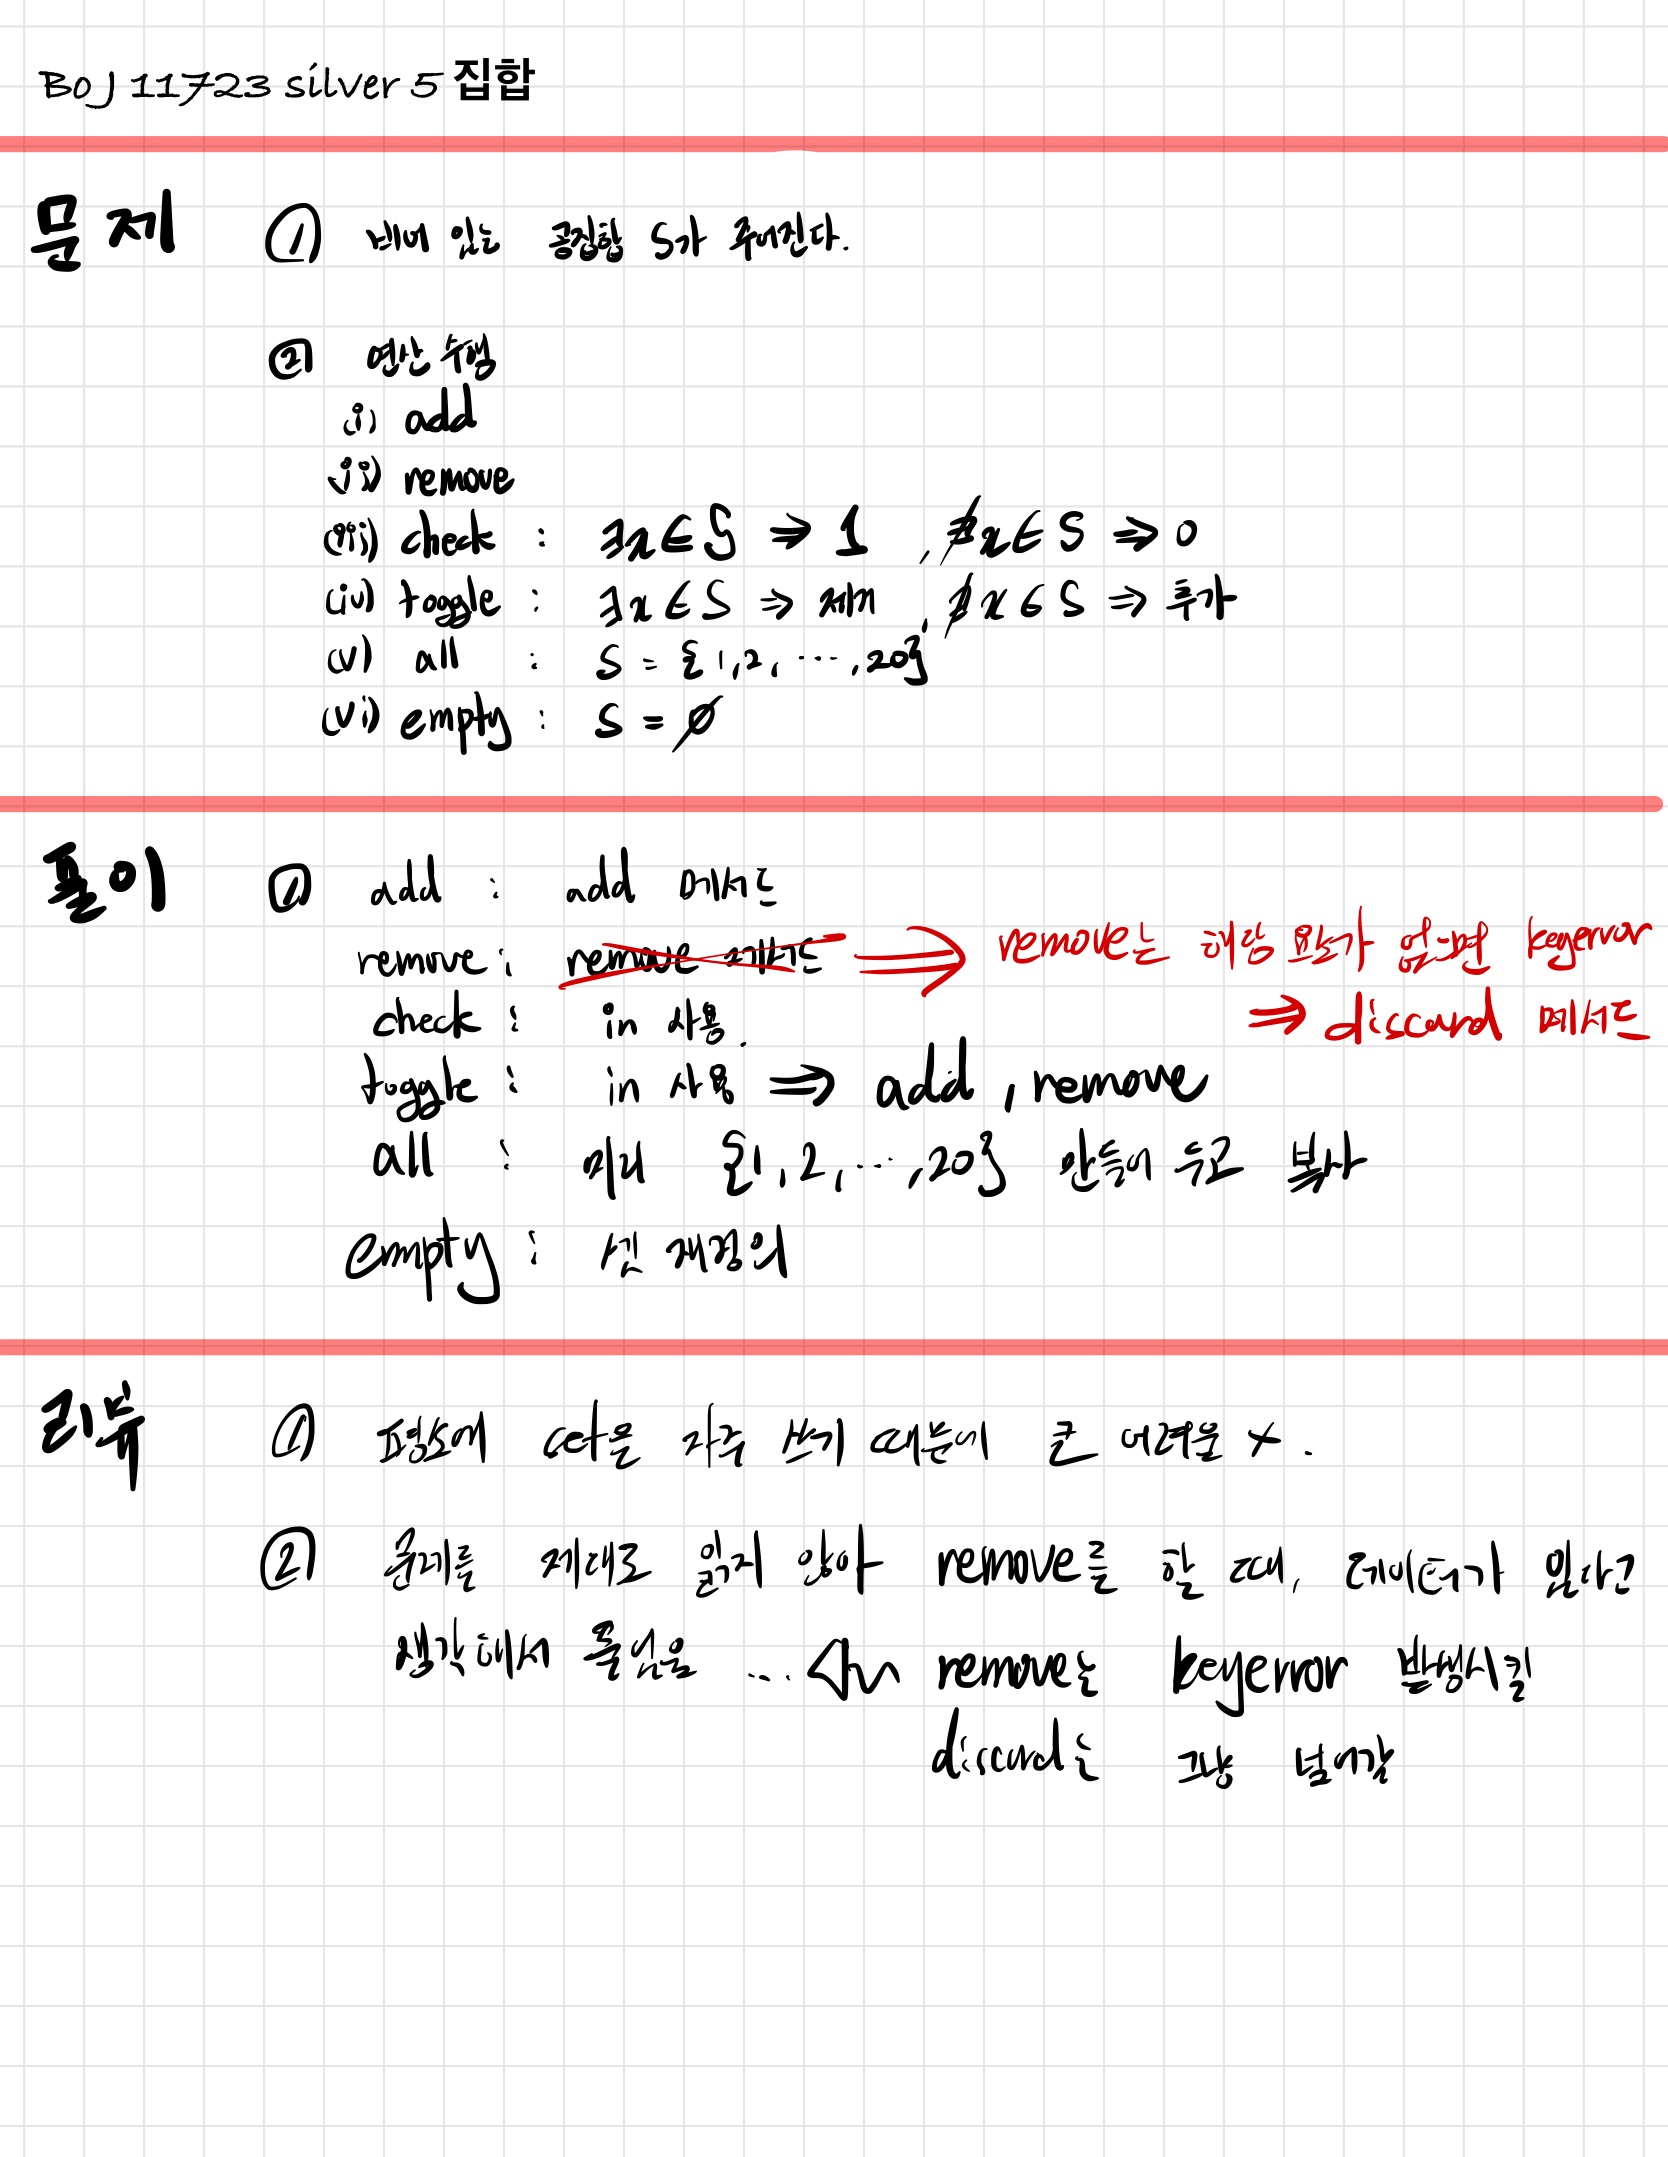 BOJ 11723 silver 5 집합
문제 ① 비어 있는 공집합 S가 주어진다.
② 연산 수행
(i) add
(ii) remove
(iii) check : ∃x∈S ⇒ 1 , ∄x∈S ⇒ 0
(iv) toggle : ∃x∈S ⇒ 제거 , ∄x∈S ⇒ 추가
(v) all : S = {1,2, ⋯ ,20}
(vi) empty : S = ∅
풀이 ① add : add 메서드
remove : remove 메서드 ⇒ remove는 해당 요소가 없으면 keyerror
⇒ discard 메서드
check : in 사용.
toggle : in 사용 ⇒ add , remove
all : 미리 {1,2, ⋯ ,20} 만들어 두고 복사
empty : 셋 재정의
리뷰 ① 평소에 자주 쓰기 때문에 큰 어려움 X.
② 문제를 제대로 읽지 않아 remove를 할 때, 데이터가 있다고
생각해서 풀었음 ... remove는 keyerror 발생시킴
discard는 그냥 넘어감